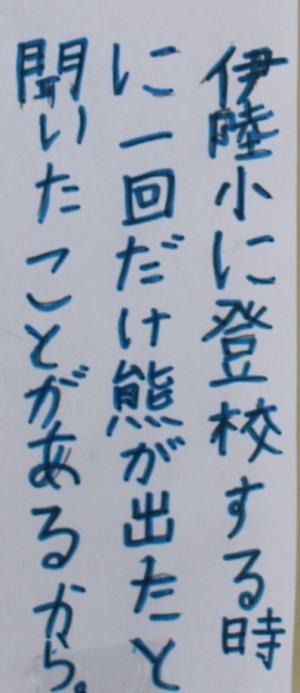 伊陸小に登校する時
に一回だけ熊が出たと
聞いたことがあるから。